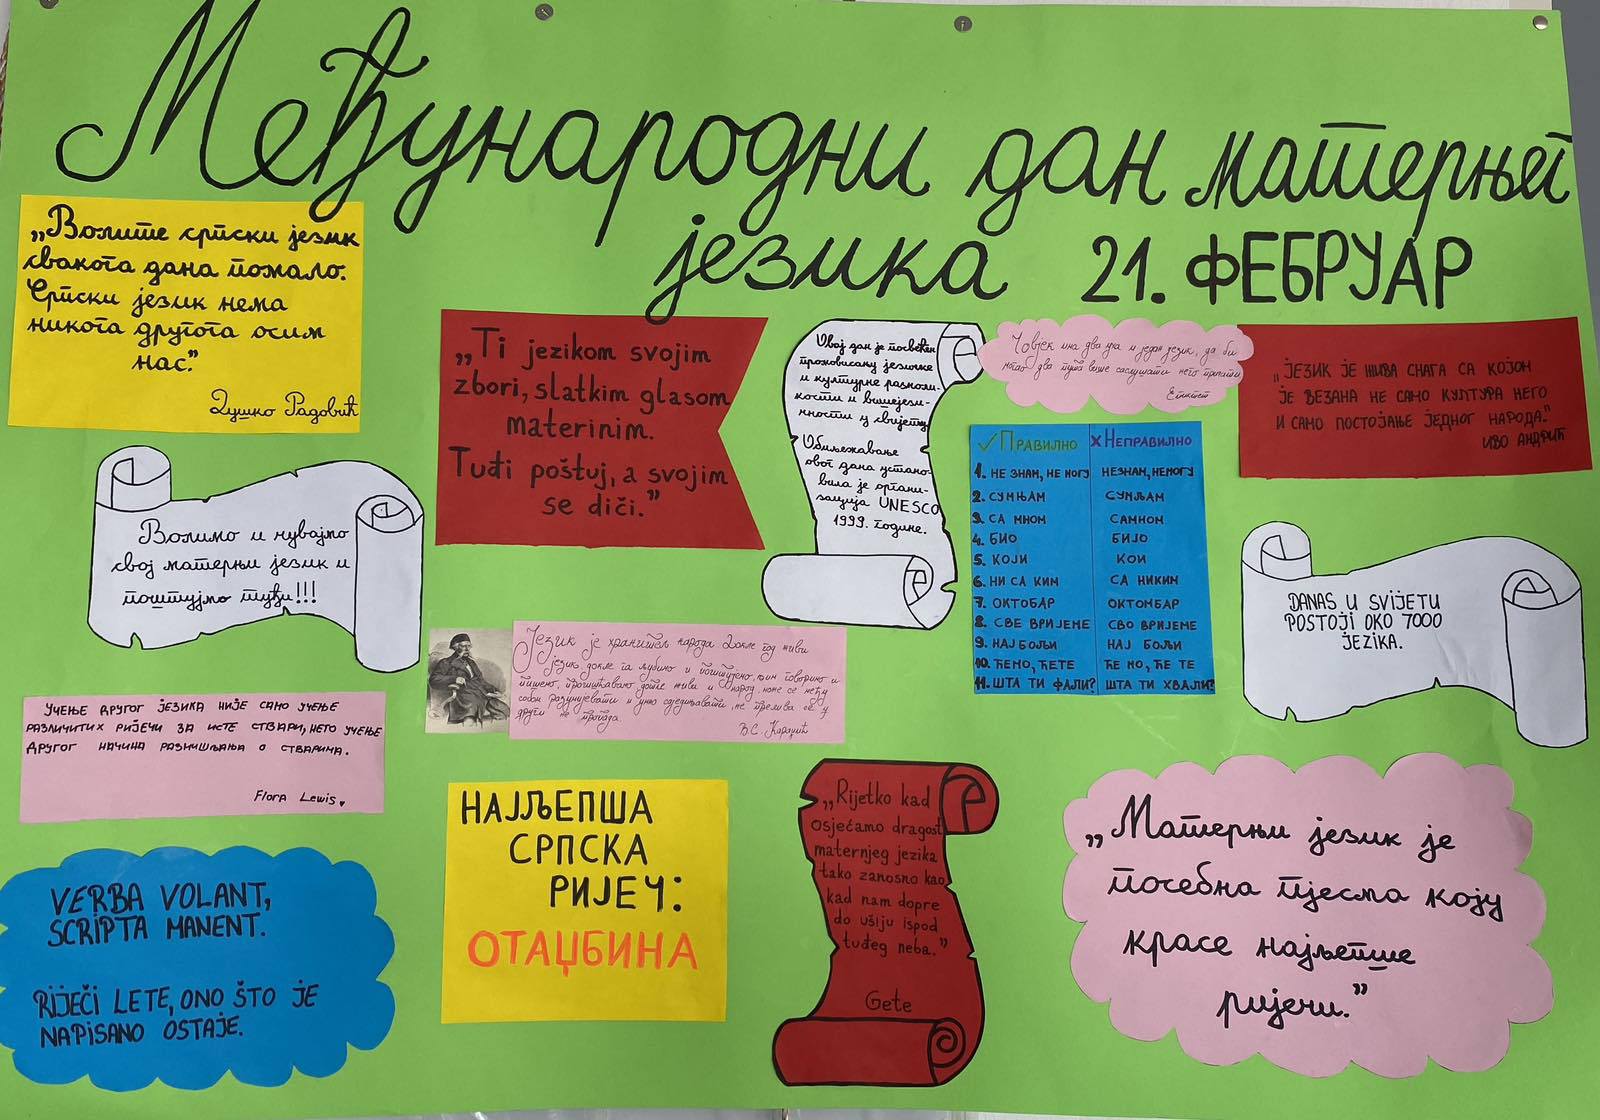 Међународни дан матерњег
језика 21. ФЕБРУАР
„Волите српски језик
свакога дана помало.
Српски језик нема
никога другога осим
нас."
Душко Радовић
„Ti jezikom svojim
zbori, slatkim glasom
materinim.
Tuđi poštuj, a svojim
se diči."
Овај дан је посвећен
промовисању језичке
и културне разноли-
кости и вишејези-
чности у свијету.
Обиљежавање
овог дана устано-
вила је органи-
зација UNESCO
1999. године.
Човјек има два уха и један језик, да би
могао два пута више саслушати него причати
Епиктет
„ЈЕЗИК ЈЕ ЖИВА СНАГА СА КОЈОМ
ЈЕ ВЕЗАНА НЕ САМО КУЛТУРА НЕГО
И САМО ПОСТОЈАЊЕ ЈЕДНОГ НАРОДА."
ИВО АНДРИЋ
✓ПРАВИЛНО ХНЕПРАВИЛНО
1. НЕ ЗНАМ, НЕ МОГУ НЕЗНАМ, НЕМОГУ
2. СУМЊАМ СУМЉАМ
3. СА МНОМ САМНОМ
4. БИО БИЈО
5. КОЈИ КОИ
6. НИ СА КИМ СА НИКИМ
7. ОКТОБАР ОКТОМБАР
8. СВЕ ВРИЈЕМЕ СВО ВРИЈЕМЕ
9. НАЈБОЉИ НАЈ БОЉИ
10. ЋЕМО, ЋЕТЕ ЋЕ МО, ЋЕ ТЕ
11. ШТА ТИ ФАЛИ? ШТА ТИ ХВАЛИ?
Волимо и чувајмо
свој матерњи језик и
поштујмо туђи!!!
DANAS U SVIJETU
POSTOJI OKO 7000
JEZIKA.
Језик је хранитељ народа. Докле год живи
језик, докле га љубимо и поштујемо, њим говоримо и
пишемо, прочишћавамо, дотле живи и народ, може се међу
собом разумјевати и умно сједињавати, не прелива се у
други не пропада.
В.С. Караџић
УЧЕЊЕ ДРУГОГ ЈЕЗИКА НИЈЕ САМО УЧЕЊЕ
РАЗЛИЧИТИХ РИЈЕЧИ ЗА ИСТЕ СТВАРИ, НЕГО УЧЕЊЕ
ДРУГОГ НАЧИНА РАЗМИШЉАЊА О СТВАРИМА.
Flora Lewis.
НАЈЉЕПША
СРПСКА
РИЈЕЧ:
ОТАЏБИНА
„Rijetko kad
osjećamo dragost
maternjeg jezika
tako zanosno kao
kad nam dopre
do ušiju ispod
tuđeg neba."
Gete
„Матерњи језик је
посебна пјесма коју
красе најљепше
ријечи."
VERBA VOLANT,
SCRIPTA MANENT.
RIJEČI LETE, ONO ŠTO JE
NAPISANO OSTAJE.